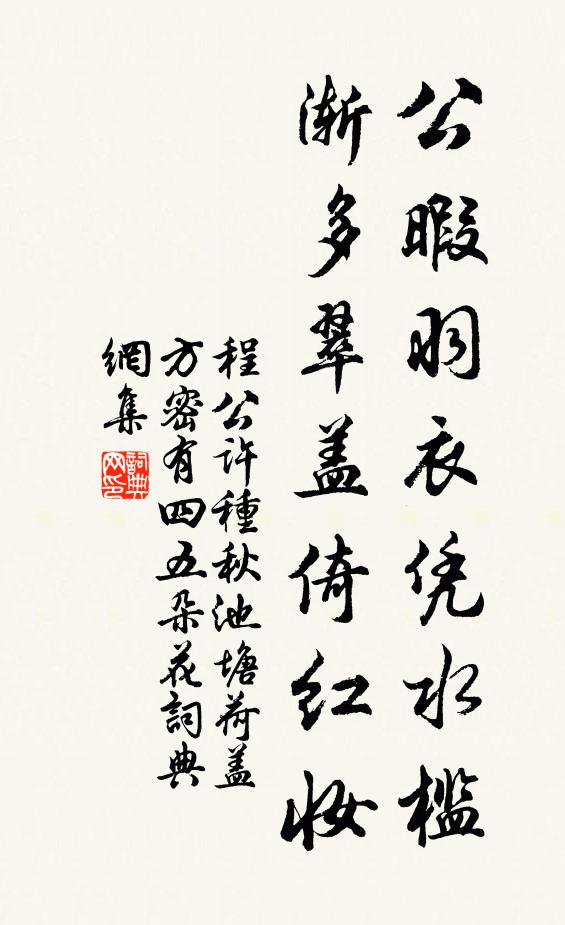 公暇羽衣凭水槛
渐多翠盖倚红妆
程公许種秋池塘荷盖
方密有四五朵花詞典
網集
詞典
网印